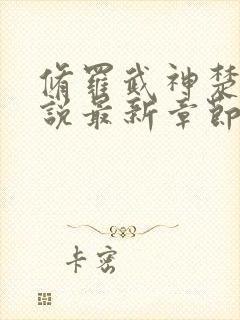 脩羅武神楚
說最新章節
卡密